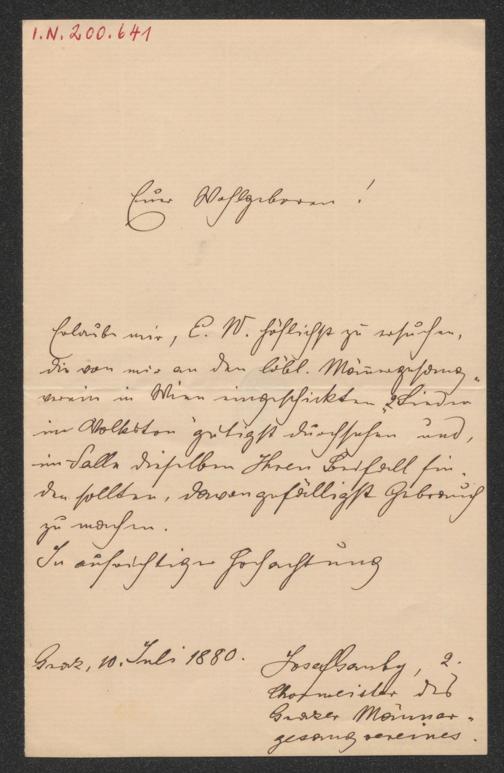 I.N. 200.641
Euer Wohlgeboren!
Erlaube mir, E. W. höflichst zu ersuchen,
die von mir an den löbl. Männergesang-
verein in Wien eingeschickten „2 Lieder
im Volkston“ gütigst durchsehen und,
im Falle dieselben Ihren Beifall fin-
den sollten, davon gefälligst Gebrauch
zu machen.
In aufrichtiger Hochachtung
Graz, 10. Juli 1880.
Josef Gauby, 2.
Chormeister des
Grazer Männer-
gesangvereines.